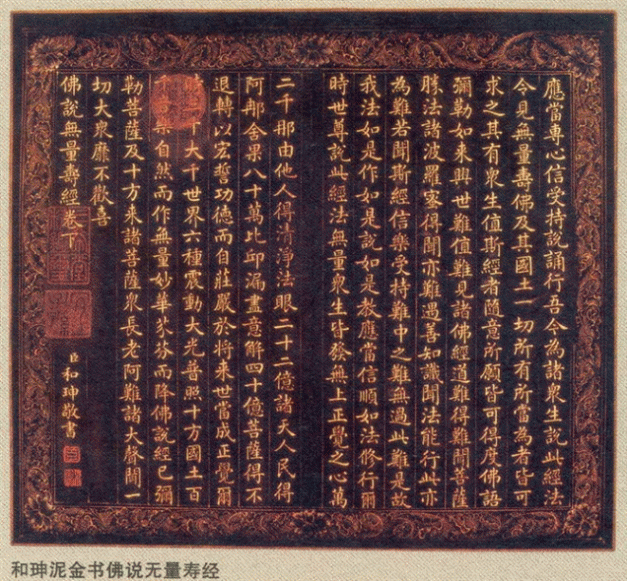 應當專心信受持說誦行吾今為諸衆生說此經法
今見無量壽佛及其國土一切所有所當為者皆可
求之其有衆生值斯經者隨意所願皆可得度佛語
彌勒如来興世難值難見諸佛經道難得難聞菩薩
勝法諸波羅蜜得聞亦難遇善知識聞法能行此亦
為難若聞斯經信樂受持難中之難無過此難是故
我法如是作如是說如是教應當信順如法修行爾
時世尊說此經法無量衆生皆發無上正覺之心萬
二千那由他人得清淨法眼二十二億諸天人民得
阿那含果八十萬比丘漏盡意解四十億菩薩得不
退轉以宏誓功德而自莊嚴於將来世當成正覺爾
大千世界六種震動大光普照十方國土百
自然而作無量妙華芬芬而降佛說經已彌
勒菩薩及十方来諸菩薩衆長老阿難諸大聲聞一
切大衆靡不歡喜
佛說無量壽經卷下
臣和珅敬書
和珅泥金书佛说无量寿经